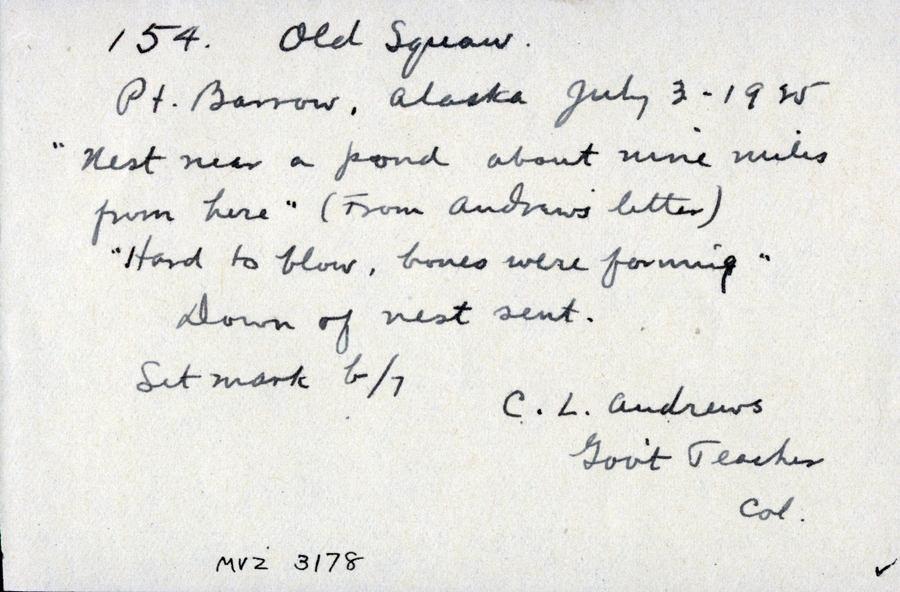 154. Old Squaw.
Pt. Barrow, Alaska July 3-1925
"Nest near a pond about nine miles
from here" (From Andrews letter)
"Hard to blow, bones were forming"
Down of nest sent.
Set mark 6/7
C. L. Andrews
Gov't Teacher
Col.
MVZ 3178